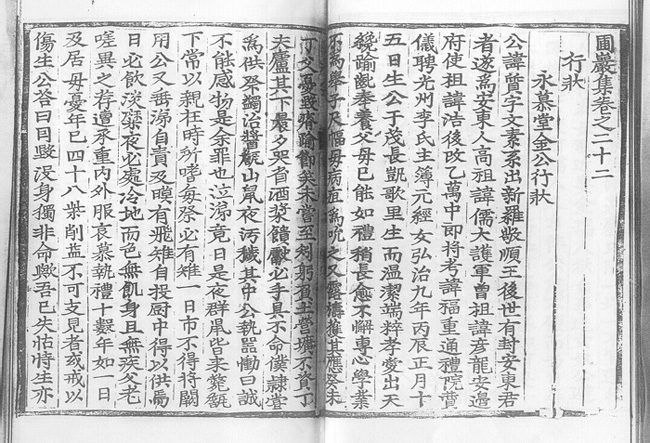 圃巖集卷之二十二
行狀
永慕堂金公行狀
公諱質字文素系出新羅敬順王後世有封安東君
者遂爲安東人高祖諱儒大護軍曾祖諱彦龍安邊
府使祖諱浩後改乙萬中郞將考諱福重通禮院
儀聘光州李氏主簿元經女弘治九年丙辰正月十
五日生公于茂長凱歌里生而溫潔端粹孝愛出天
纔踰齓奉養父母已能如禮稍長愈不懈專心學業
不爲擧子
丁父憂
夫廬其下晨夕哭省酒漿饋獻必手具不命僕隷嘗
爲供祭蠲治醬瓿山鼠夜汚穢其中公執器慟曰誠
不能感物是余罪也泣涕竟日是夜群鼠皆來斃瓿
下常以親在時所嗜每祭必有雉一日市不得將闕
用公又垂涕自責及暯有飛雉自投廚中得以供焉
日必飮淡粥夜必處冷地而色無飢身且無疾父老
嗟異之存遭承重內外服哀慕執禮十數年如一日
及居母憂年已四十八柴削益不可支見者或戒以
傷生公答曰日毀沒身獨非命歟吾已失怙恃生亦